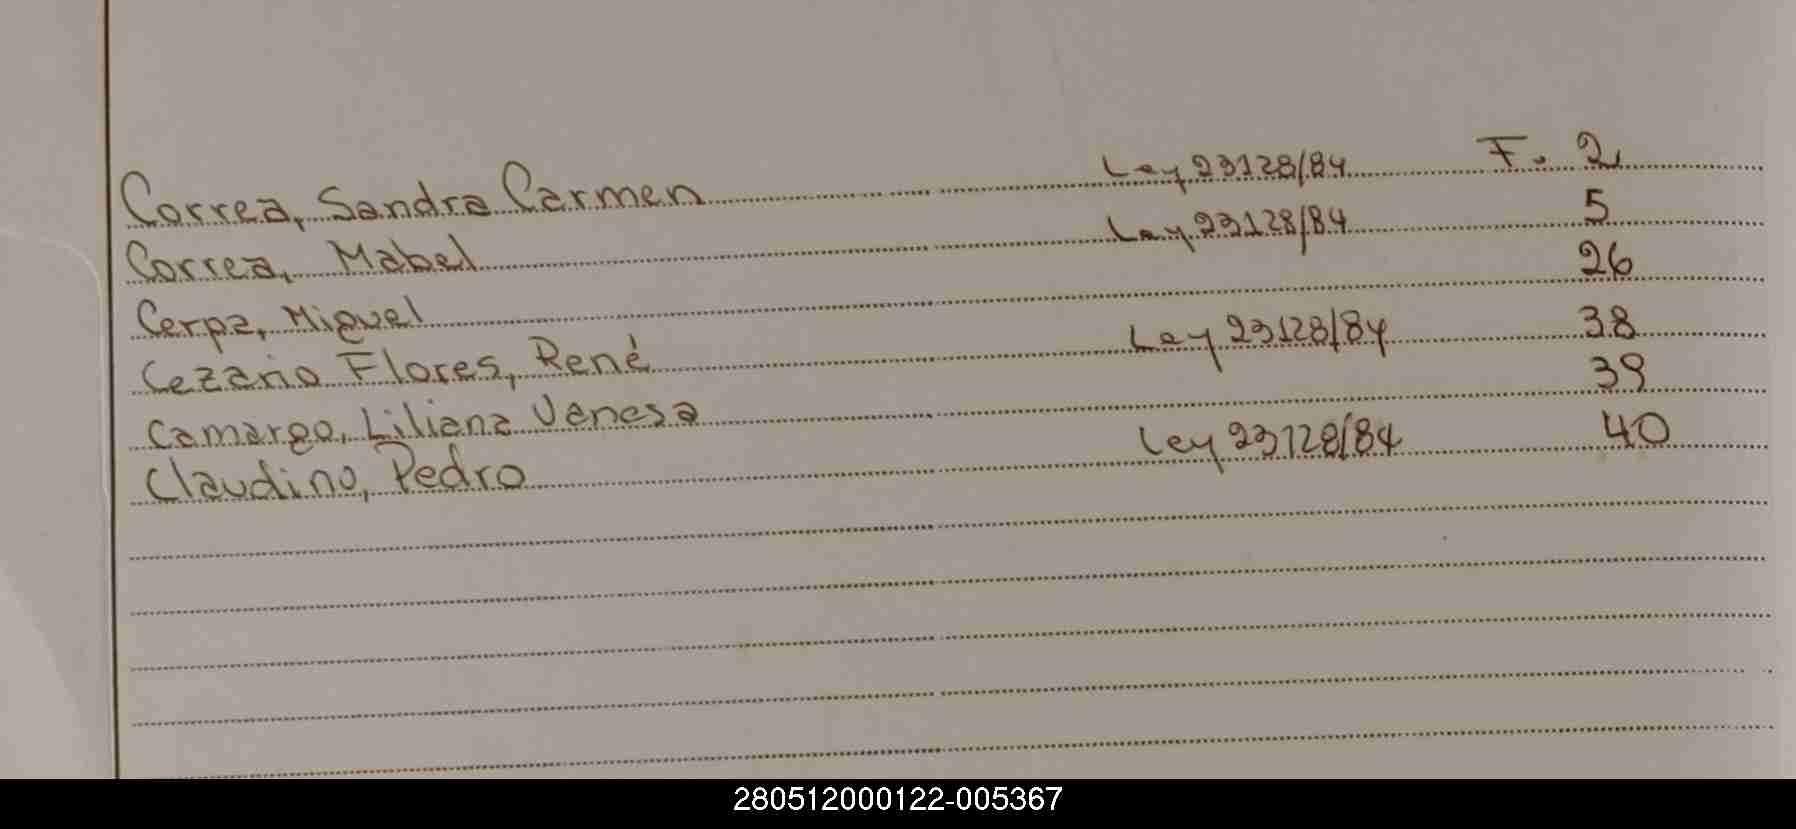 Correa, Sandra Carmen Ley 23128/84 F. 2
Correa, Mabel Ley 23128/84 5
Cerpa, Miguel 26
Cezario Flores, René Ley 23128/84 38
Camargo, Liliana Vanesa 39
Claudino, Pedro Ley 23128/84 40
280512000122-005367